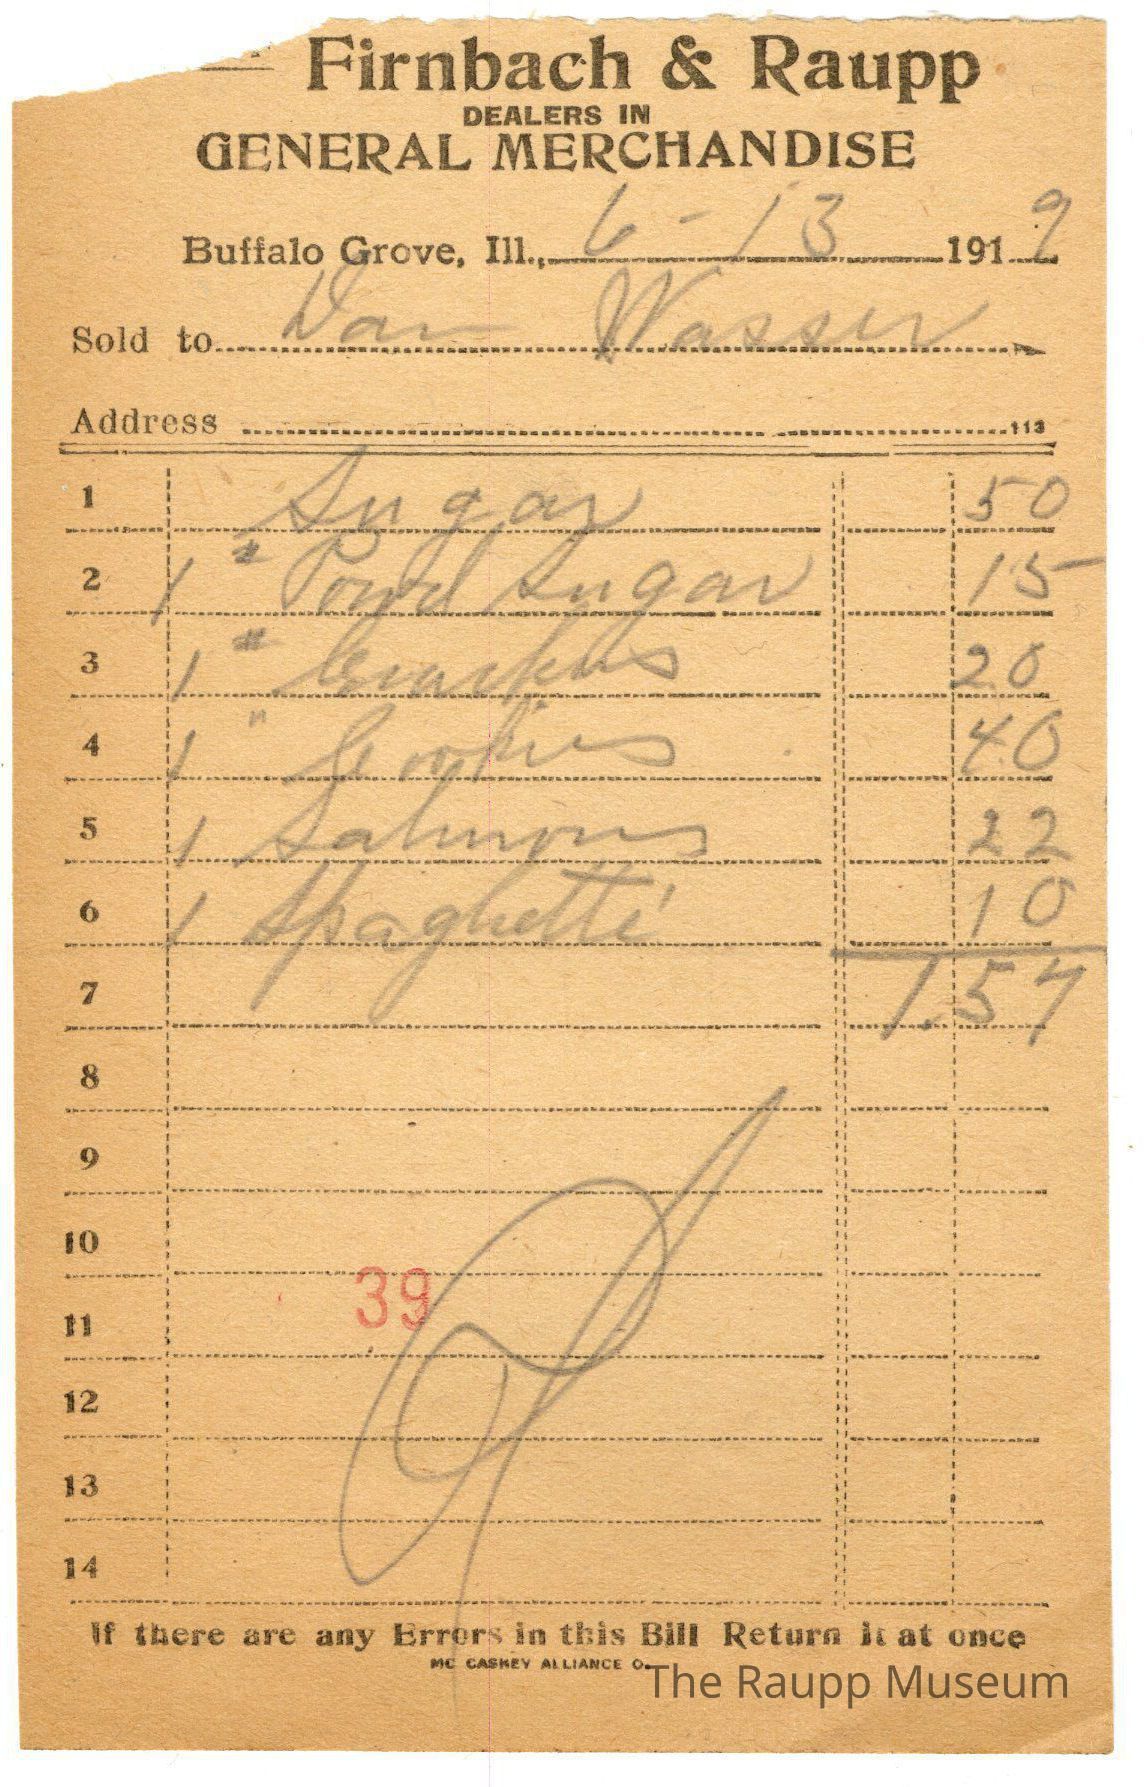 Firnbach & Raupp
DEALERS IN
GENERAL MERCHANDISE
Buffalo Grove, Ill., 6-13 1919
Sold to Dan Wasser
Address 113
1 Sugar 50
2 1 # Powd Sugar 15
3 1 # Crackers 20
4 1 " Cookies 40
5 1 Salmons 22
6 1 Spaghetti 10
7 1.57
8
9
10
39
11
12
13
14
If there are any Errors in this Bill Return it at once
MC CASKEY ALLIANCE O.
The Raupp Museum